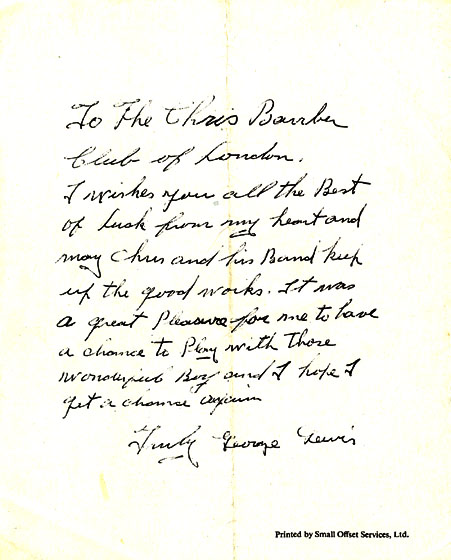 To The Chris Barber
Club of London.
I wishes you all the Best
of Lusk from my heart and
may Chris and his Band keep
up the good works. It was
a great Pleasure for me to have
a chance to Play with Those
wonderful Boy and I hope I
get a chance again
Truly George Lewis
Printed by Small Offset Services, Ltd.